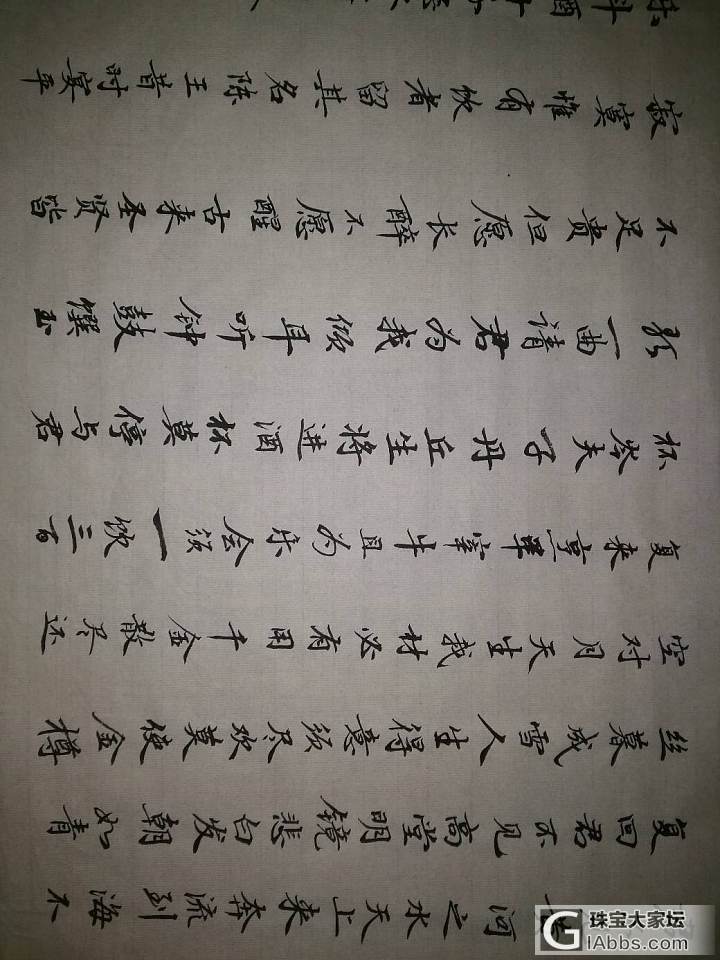 河之水天上来奔流到海不
复回君不见高堂明镜悲白发朝如青
丝暮成雪人生得意须尽欢莫使金樽
空对月天生我材必有用千金散尽还
复来烹羊宰牛且为乐会须一饮三百
杯岑夫子丹丘生将进酒杯莫停与君
歌一曲请君为我倾耳听钟鼓馔玉
不足贵但愿长醉不愿醒古来圣贤皆
寂寞惟有饮者留其名陈王昔时宴平
乐斗酒
珠宝大家坛
IAbbs.com